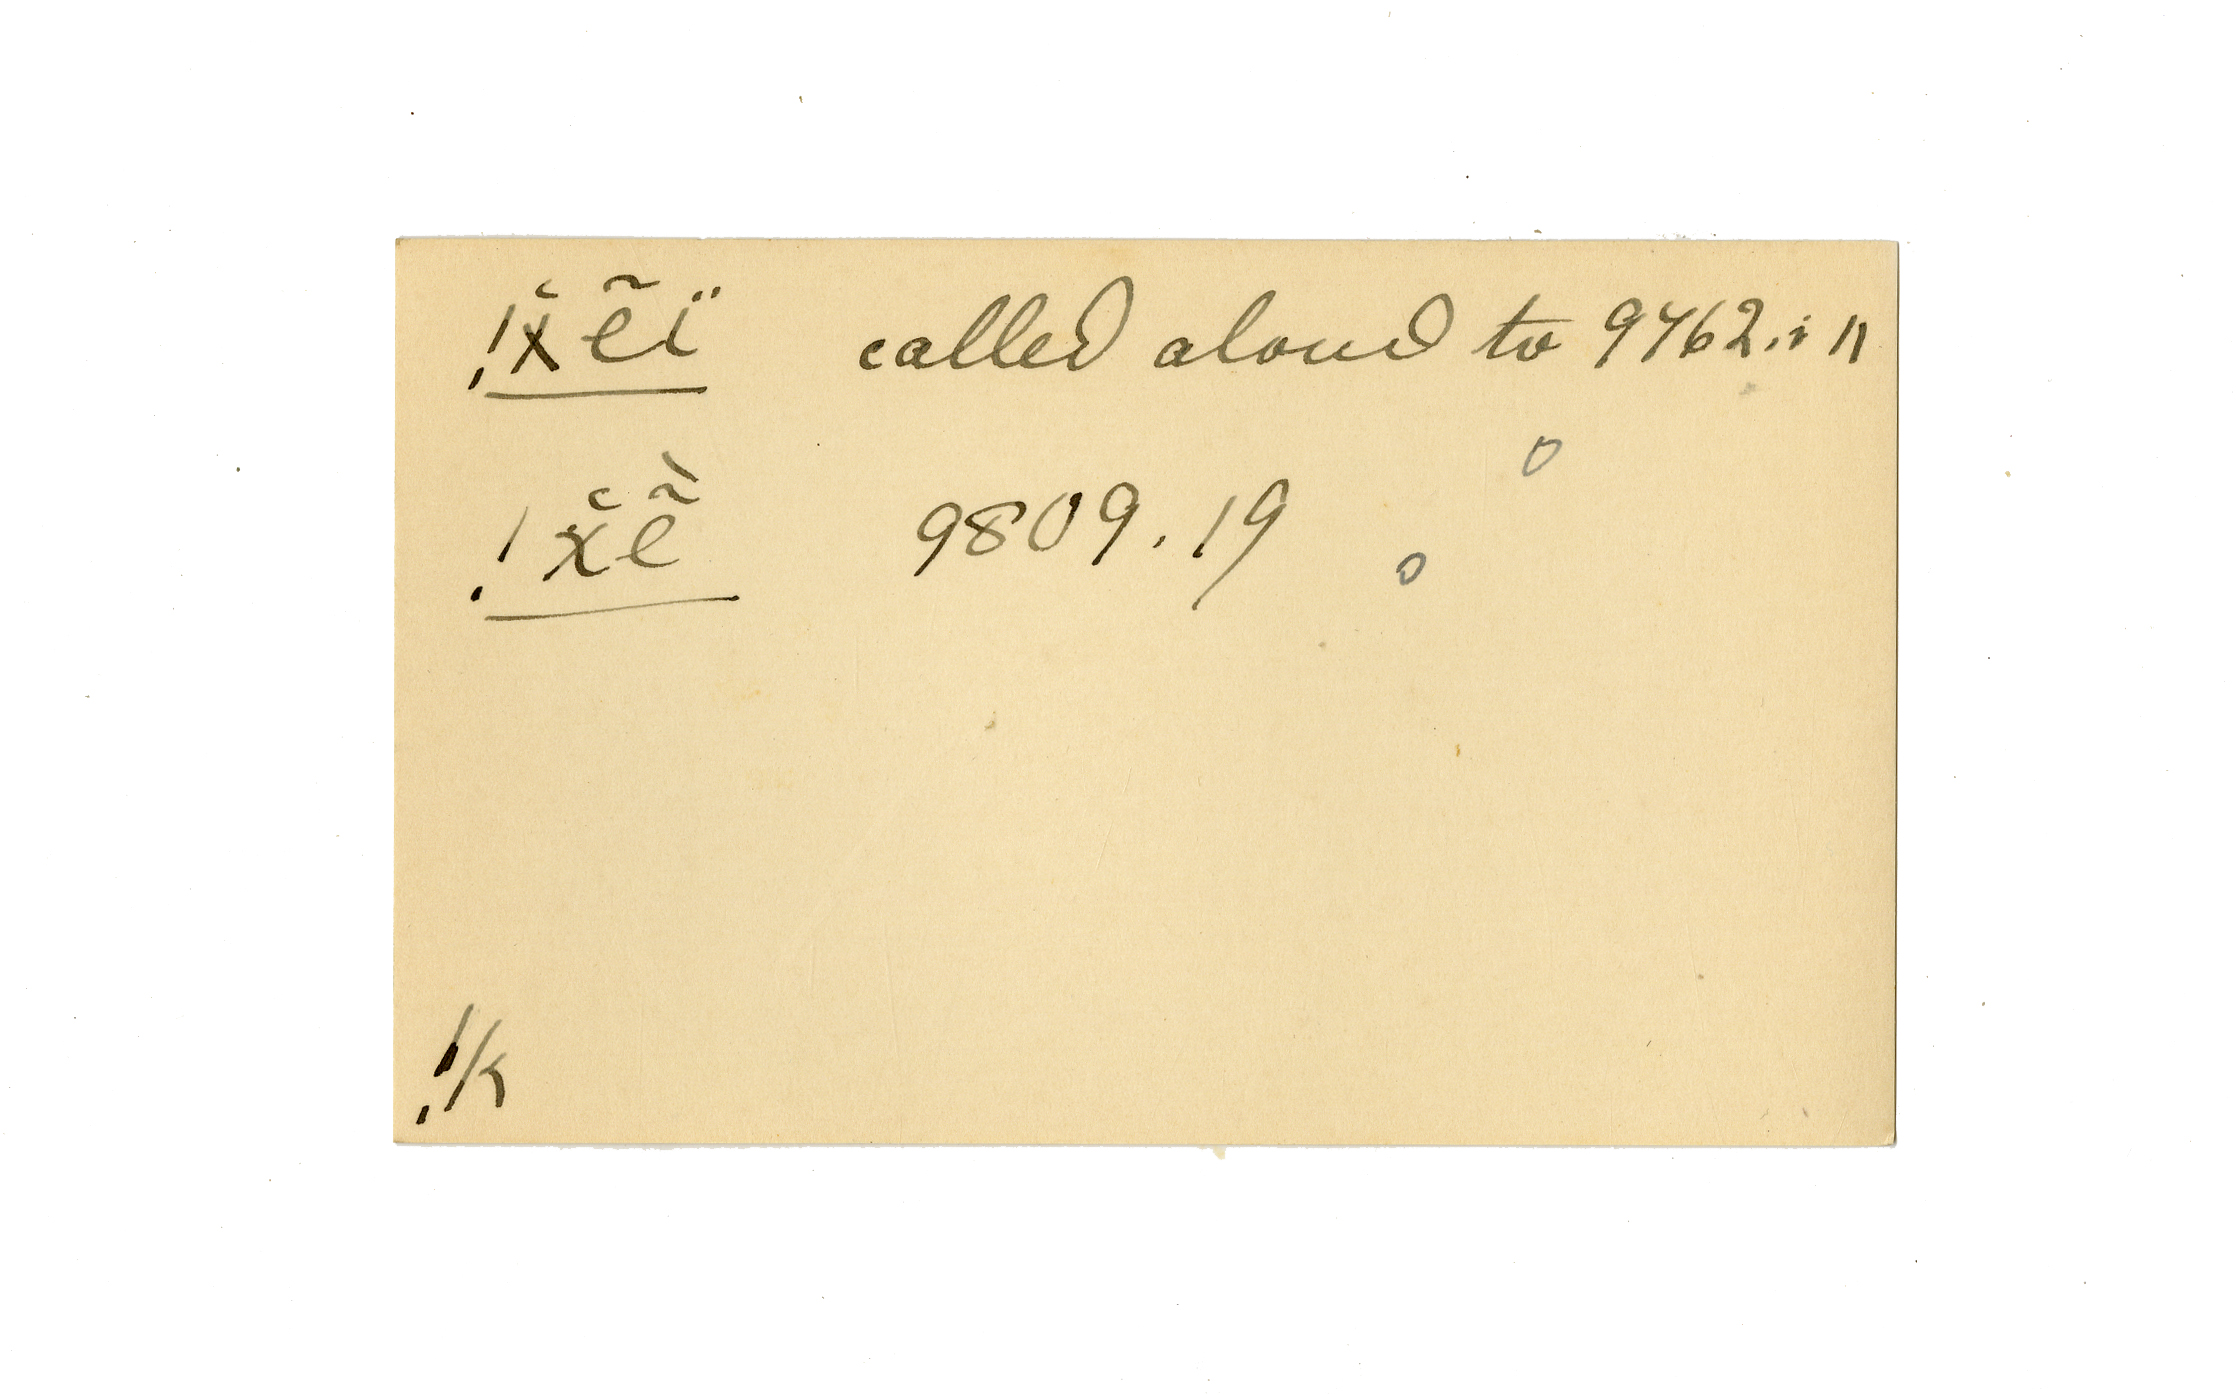 !χ̆ẽï called aloud to 9762.
!χ̆ẽ̀ 9809.19
!k